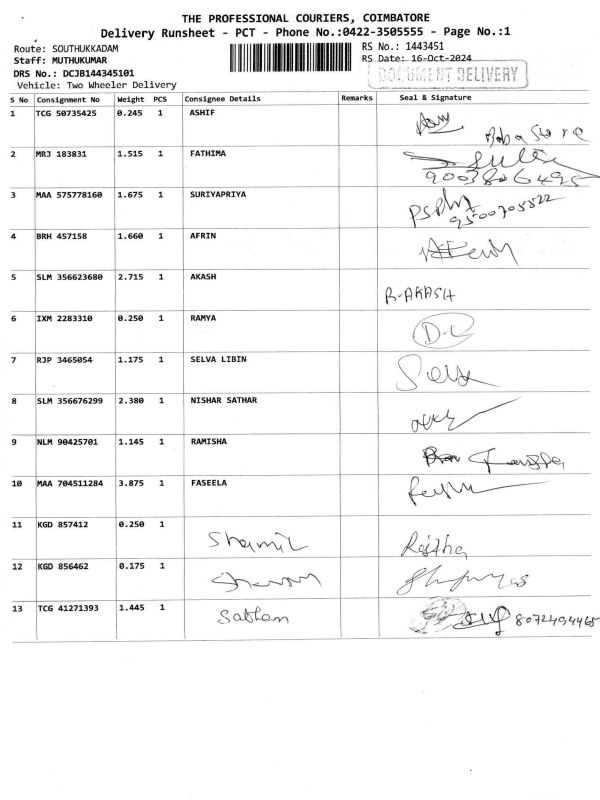 THE PROFESSIONAL COURIERS, COIMBATORE
Delivery Runsheet - PCT - Phone No.:0422-3505555 - Page No.:1
Route: SOUTHUKKADAM RS No.: 1443451
Staff: MUTHUKUMAR RS Date: 16-Oct-2024
DRS No.: DCJB144345101 DOCUMENT DELIVERY
Vehicle: Two Wheeler Delivery
S No Consignment No Weight PCS Consignee Details Remarks Seal & Signature
1 TCG 50735425 0.245 1 ASHIF
2 MRJ 183831 1.515 1 FATHIMA
9003806495
3 MAA 575778160 1.675 1 SURIYAPRIYA
9500705822
4 BRH 457158 1.660 1 AFRIN
5 SLM 356623680 2.715 1 AKASH
R-AKASH
6 IXM 2283310 0.250 1 RAMYA
D.L
7 RJP 3465054 1.175 1 SELVA LIBIN
8 SLM 356676299 2.380 1 NISHAR SATHAR
9 NLM 90425701 1.145 1 RAMISHA
10 MAA 704511284 3.875 1 FASEELA
11 KGD 857412 0.250 1 Shamil
12 KGD 856462 0.175 1
13 TCG 41271393 1.445 1 8072494465